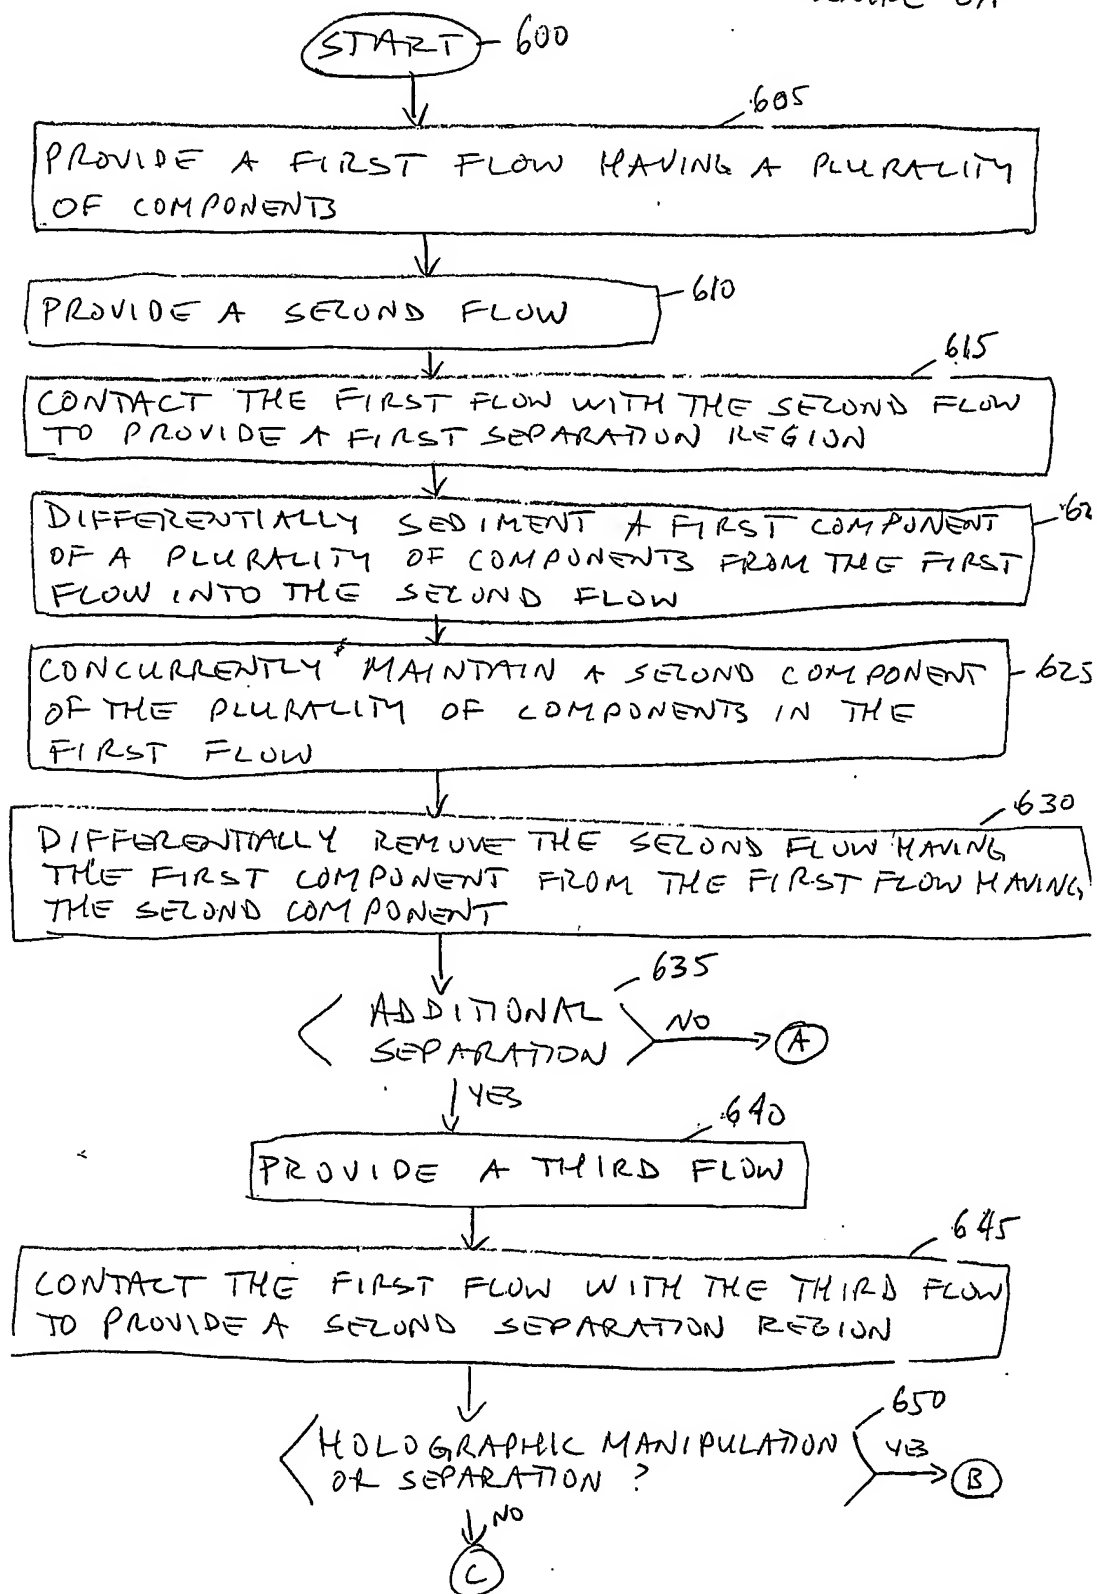 START 600
605
PROVIDE A FIRST FLOW HAVING A PLURALITY
OF COMPONENTS
610
PROVIDE A SECOND FLOW
615
CONTACT THE FIRST FLOW WITH THE SECOND FLOW
TO PROVIDE A FIRST SEPARATION REGION
DIFFERENTIALLY SEDIMENT A FIRST COMPONENT
62
OF A PLURALITY OF COMPONENTS FROM THE FIRST
FLOW INTO THE SECOND FLOW
CONCURRENTLY MAINTAIN A SECOND COMPONENT
625
OF THE PLURALITY OF COMPONENTS IN THE
FIRST FLOW
630
DIFFERENTIALLY REMOVE THE SECOND FLOW HAVING
THE FIRST COMPONENT FROM THE FIRST FLOW HAVING
THE SECOND COMPONENT
635
ADDITIONAL
SEPARATION
NO
A
YES
640
PROVIDE A THIRD FLOW
645
CONTACT THE FIRST FLOW WITH THE THIRD FLOW
TO PROVIDE A SECOND SEPARATION REGION
650
HOLOGRAPHIC MANIPULATION
OR SEPARATION ?
YES
B
NO
C